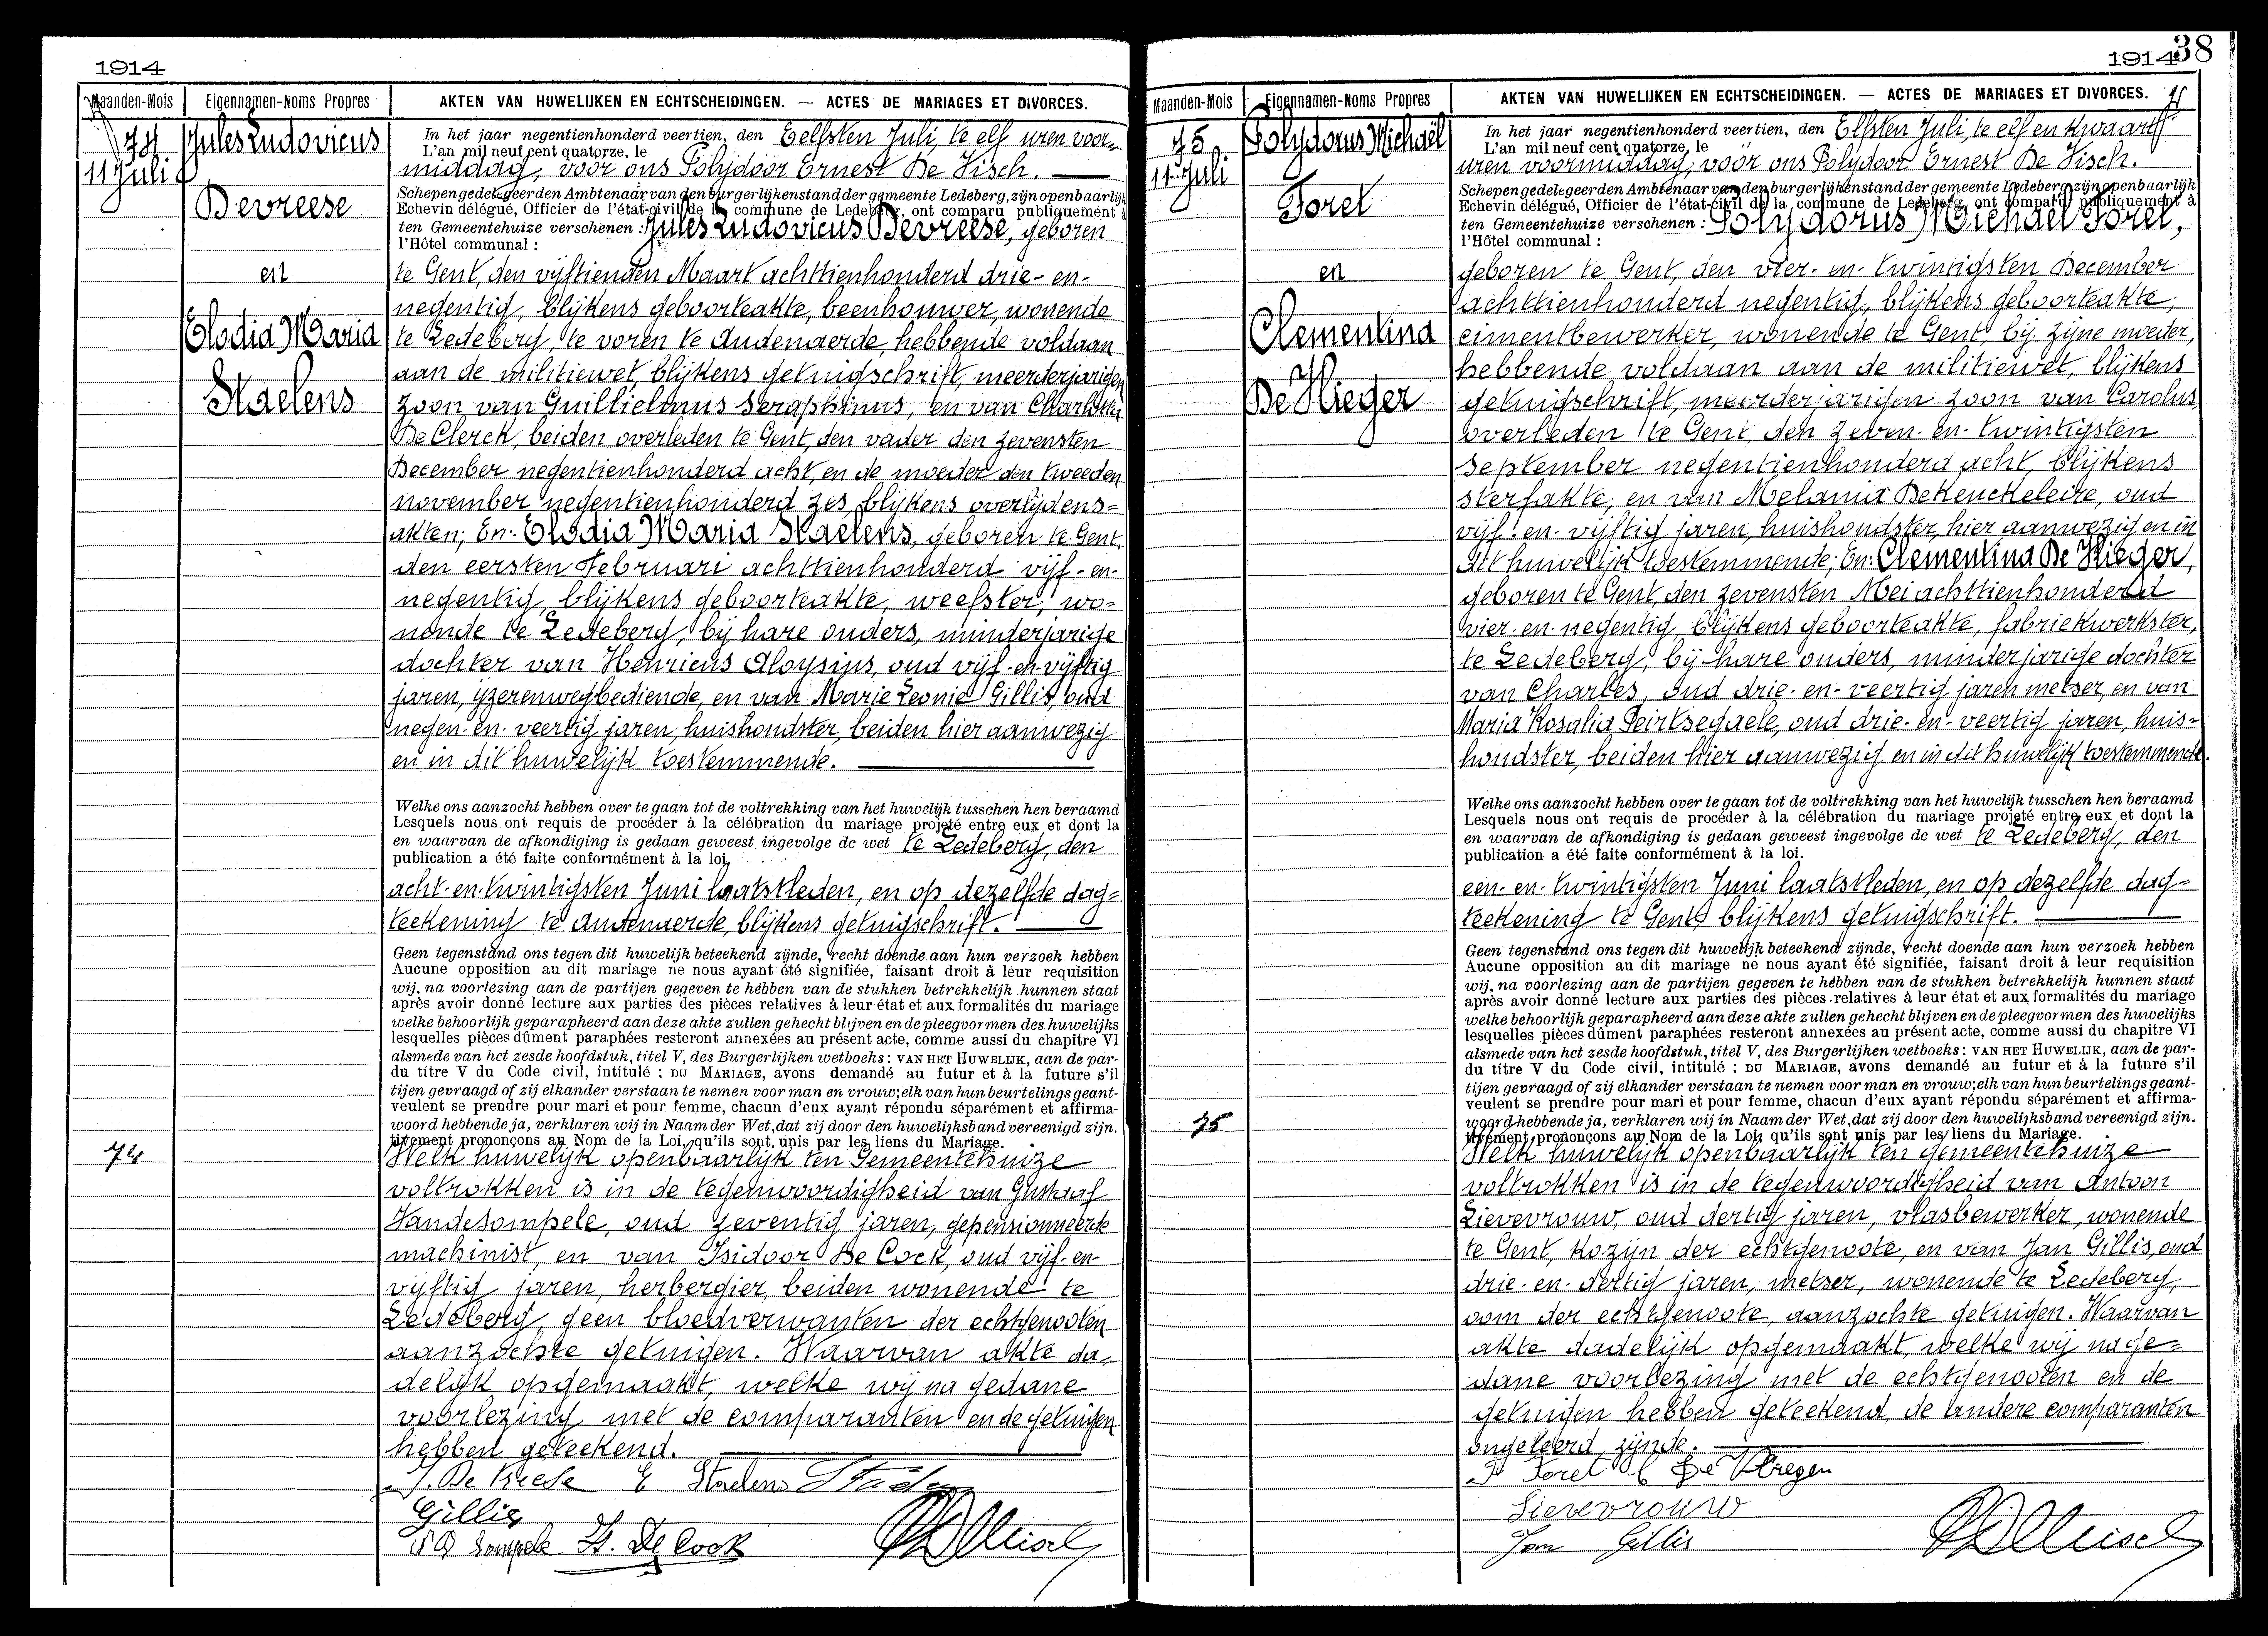 1914
Maanden-Mois Eigennamen-Noms Propres AKTEN VAN HUWELIJKEN EN ECHTSCHEIDINGEN. — ACTES DE MARIAGES ET DIVORCES.
74
11 Juli
Jules Ludovicus
Devreese
en
Elodia Maria
Staelens
In het jaar negentienhonderd veertien, den Eelfsten Juli, te elf uren voor-
L'an mil neuf cent quatorze, le
middag, voor ons Polydoor Ernest De Visch.
Schepen gedelegeerden Ambtenaar van den burgerlijkenstand der gemeente Ledeberg, zijn openbaarlijk
Echevin délégué, Officier de l'état-civil de la commune de Ledeberg, ont comparu publiquement à
ten Gemeentehuize verschenen : Jules Ludovicus Devreese, geboren
l'Hôtel communal :
te Gent, den vijftienden Maart achttienhonderd drie-en-
negentig, blijkens geboorteakte, beenhouwer, wonende
te Ledeberg, te voren te Audenaerde, hebbende voldaan
aan de militiewet, blijkens getuigschrift, meerderjarigen
zoon van Guillielmus Seraphinus, en van Charlotta
De Clerck, beiden overleden te Gent, den vader den zevensten
December negentienhonderd acht, en de moeder den tweeden
november negentienhonderd zes, blijkens overlijdens=
akten; En: Elodia Maria Staelens, geboren te Gent,
den eersten Februari achttienhonderd vijf-en-
negentig, blijkens geboorteakte, weefster, wo=
nende te Ledeberg, bij hare ouders, minderjarige
dochter van Henricus Aloysius, oud vijf-en-vijftig
jaren, ijzerenwegbediende, en van Marie Leonie Gillis, oud
negen-en-veertig jaren, huishoudster, beiden hier aanwezig
en in dit huwelijk toestemmende.
Welke ons aanzocht hebben over te gaan tot de voltrekking van het huwelijk tusschen hen beraamd
Lesquels nous ont requis de procéder à la célébration du mariage projeté entre eux et dont la
en waarvan de afkondiging is gedaan geweest ingevolge de wet te Ledeberg, den
publication a été faite conformément à la loi.
acht-en-twintigsten Juni laatstleden, en op dezelfde dag=
teekening te Audenaerde, blijkens getuigschrift.
Geen tegenstand ons tegen dit huwelijk beteekend zijnde, recht doende aan hun verzoek hebben
Aucune opposition au dit mariage ne nous ayant été signifiée, faisant droit à leur requisition
wij, na voorlezing aan de partijen gegeven te hebben van de stukken betrekkelijk hunnen staat
après avoir donné lecture aux parties des pièces relatives à leur état et aux formalités du mariage
welke behoorlijk geparapheerd aan deze akte zullen gehecht blijven en de pleegvormen des huwelijks
lesquelles pièces dûment paraphées resteront annexées au présent acte, comme aussi du chapitre VI
alsmede van het zesde hoofdstuk, titel V, des Burgerlijken wetboeks : VAN HET HUWELIJK, aan de par-
du titre V du Code civil, intitulé : DU MARIAGE, avons demandé au futur et à la future s'il
tijen gevraagd of zij elkander verstaan te nemen voor man en vrouw; elk van hun beurtelings geant-
veulent se prendre pour mari et pour femme, chacun d'eux ayant répondu séparément et affirma-
woord hebbende ja, verklaren wij in Naam der Wet, dat zij door den huwelijksband vereenigd zijn.
tivement prononçons au Nom de la Loi, qu'ils sont unis par les liens du Mariage.
74
Welk huwelijk openbaarlijk ten Gemeentehuize
voltrokken is in de tegenwoordigheid van Gustaaf
Vandesompele, oud zeventig jaren, gepensionneerde
machinist, en van Isidoor De Cock, oud vijf-en-
vijftig jaren, herbergier, beiden wonende te
Ledeberg, geen bloedverwanten der echtgenooten
aanzochte getuigen. Waarvan akte da=
delijk opgemaakt, welke wij na gedane
voorlezing met de comparanten en de getuigen
hebben geteekend.
E Staelens
Gillis
De Cock
1914 38
Maanden-Mois Eigennamen-Noms Propres AKTEN VAN HUWELIJKEN EN ECHTSCHEIDINGEN. — ACTES DE MARIAGES ET DIVORCES.
75
11 Juli
Polydorus Michaël
Forel
en
Clementina
De Vlieger
In het jaar negentienhonderd veertien, den Elfsten Juli, te elf en kwaart
L'an mil neuf cent quatorze, le
uren voormiddag, voor ons Polydoor Ernest De Visch.
Schepen gedelegeerden Ambtenaar van den burgerlijkenstand der gemeente Ledeberg, zijn openbaarlijk
Echevin délégué, Officier de l'état-civil de la commune de Ledeberg, ont comparu publiquement à
ten Gemeentehuize verschenen : Polydorus Michaël Forel,
l'Hôtel communal :
geboren te Gent, den vier-en-twintigsten December
achttienhonderd negentig, blijkens geboorteakte,
cimentbewerker, wonende te Gent, bij zijne moeder,
hebbende voldaan aan de militiewet, blijkens
getuigschrift, meerderjarigen zoon van Carolus,
overleden te Gent, den zeven-en-twintigsten
September negentienhonderd acht, blijkens
sterfakte, en van Melania Dekeuckeleire, oud
vijf-en-vijftig jaren, huishoudster, hier aanwezig en in
dit huwelijk toestemmende; En: Clementina De Vlieger,
geboren te Gent, den zevensten Mei achttienhonderd
vier-en-negentig, blijkens geboorteakte, fabriekwerkster,
te Ledeberg, bij hare ouders, minderjarige dochter
van Charles, oud drie-en-veertig jaren metser, en van
Maria Rosalia Peirtsegaele, oud drie-en-veertig jaren, huis=
houdster, beiden hier aanwezig en in dit huwelijk toestemmende.
Welke ons aanzocht hebben over te gaan tot de voltrekking van het huwelijk tusschen hen beraamd
Lesquels nous ont requis de procéder à la célébration du mariage projeté entre eux et dont la
en waarvan de afkondiging is gedaan geweest ingevolge de wet te Ledeberg, den
publication a été faite conformément à la loi.
een-en-twintigsten Juni laatstleden, en op dezelfde dag=
teekening te Gent, blijkens getuigschrift.
Geen tegenstand ons tegen dit huwelijk beteekend zijnde, recht doende aan hun verzoek hebben
Aucune opposition au dit mariage ne nous ayant été signifiée, faisant droit à leur requisition
wij, na voorlezing aan de partijen gegeven te hebben van de stukken betrekkelijk hunnen staat
après avoir donné lecture aux parties des pièces relatives à leur état et aux formalités du mariage
welke behoorlijk geparapheerd aan deze akte zullen gehecht blijven en de pleegvormen des huwelijks
lesquelles pièces dûment paraphées resteront annexées au présent acte, comme aussi du chapitre VI
alsmede van het zesde hoofdstuk, titel V, des Burgerlijken wetboeks : VAN HET HUWELIJK, aan de par-
du titre V du Code civil, intitulé : DU MARIAGE, avons demandé au futur et à la future s'il
tijen gevraagd of zij elkander verstaan te nemen voor man en vrouw; elk van hun beurtelings geant-
veulent se prendre pour mari et pour femme, chacun d'eux ayant répondu séparément et affirma-
woord hebbende ja, verklaren wij in Naam der Wet, dat zij door den huwelijksband vereenigd zijn.
tivement prononçons au Nom de la Loi, qu'ils sont unis par les liens du Mariage.
75
Welk huwelijk openbaarlijk ten Gemeentehuize
voltrokken is in de tegenwoordigheid van Antoon
Lievevrouw, oud dertig jaren, vlasbewerker, wonende
te Gent, kozijn der echtgenoote, en van Jan Gillis, oud
drie-en-dertig jaren, metser, wonende te Ledeberg,
oom der echtgenoote, aanzochte getuigen. Waarvan
akte dadelijk opgemaakt, welke wij na ge=
dane voorlezing met de echtgenooten en de
getuigen hebben geteekend, de andere comparanten
ongeleerd zijnde.
P Forel C De Vlieger
Lievevrouw
Jan Gillis